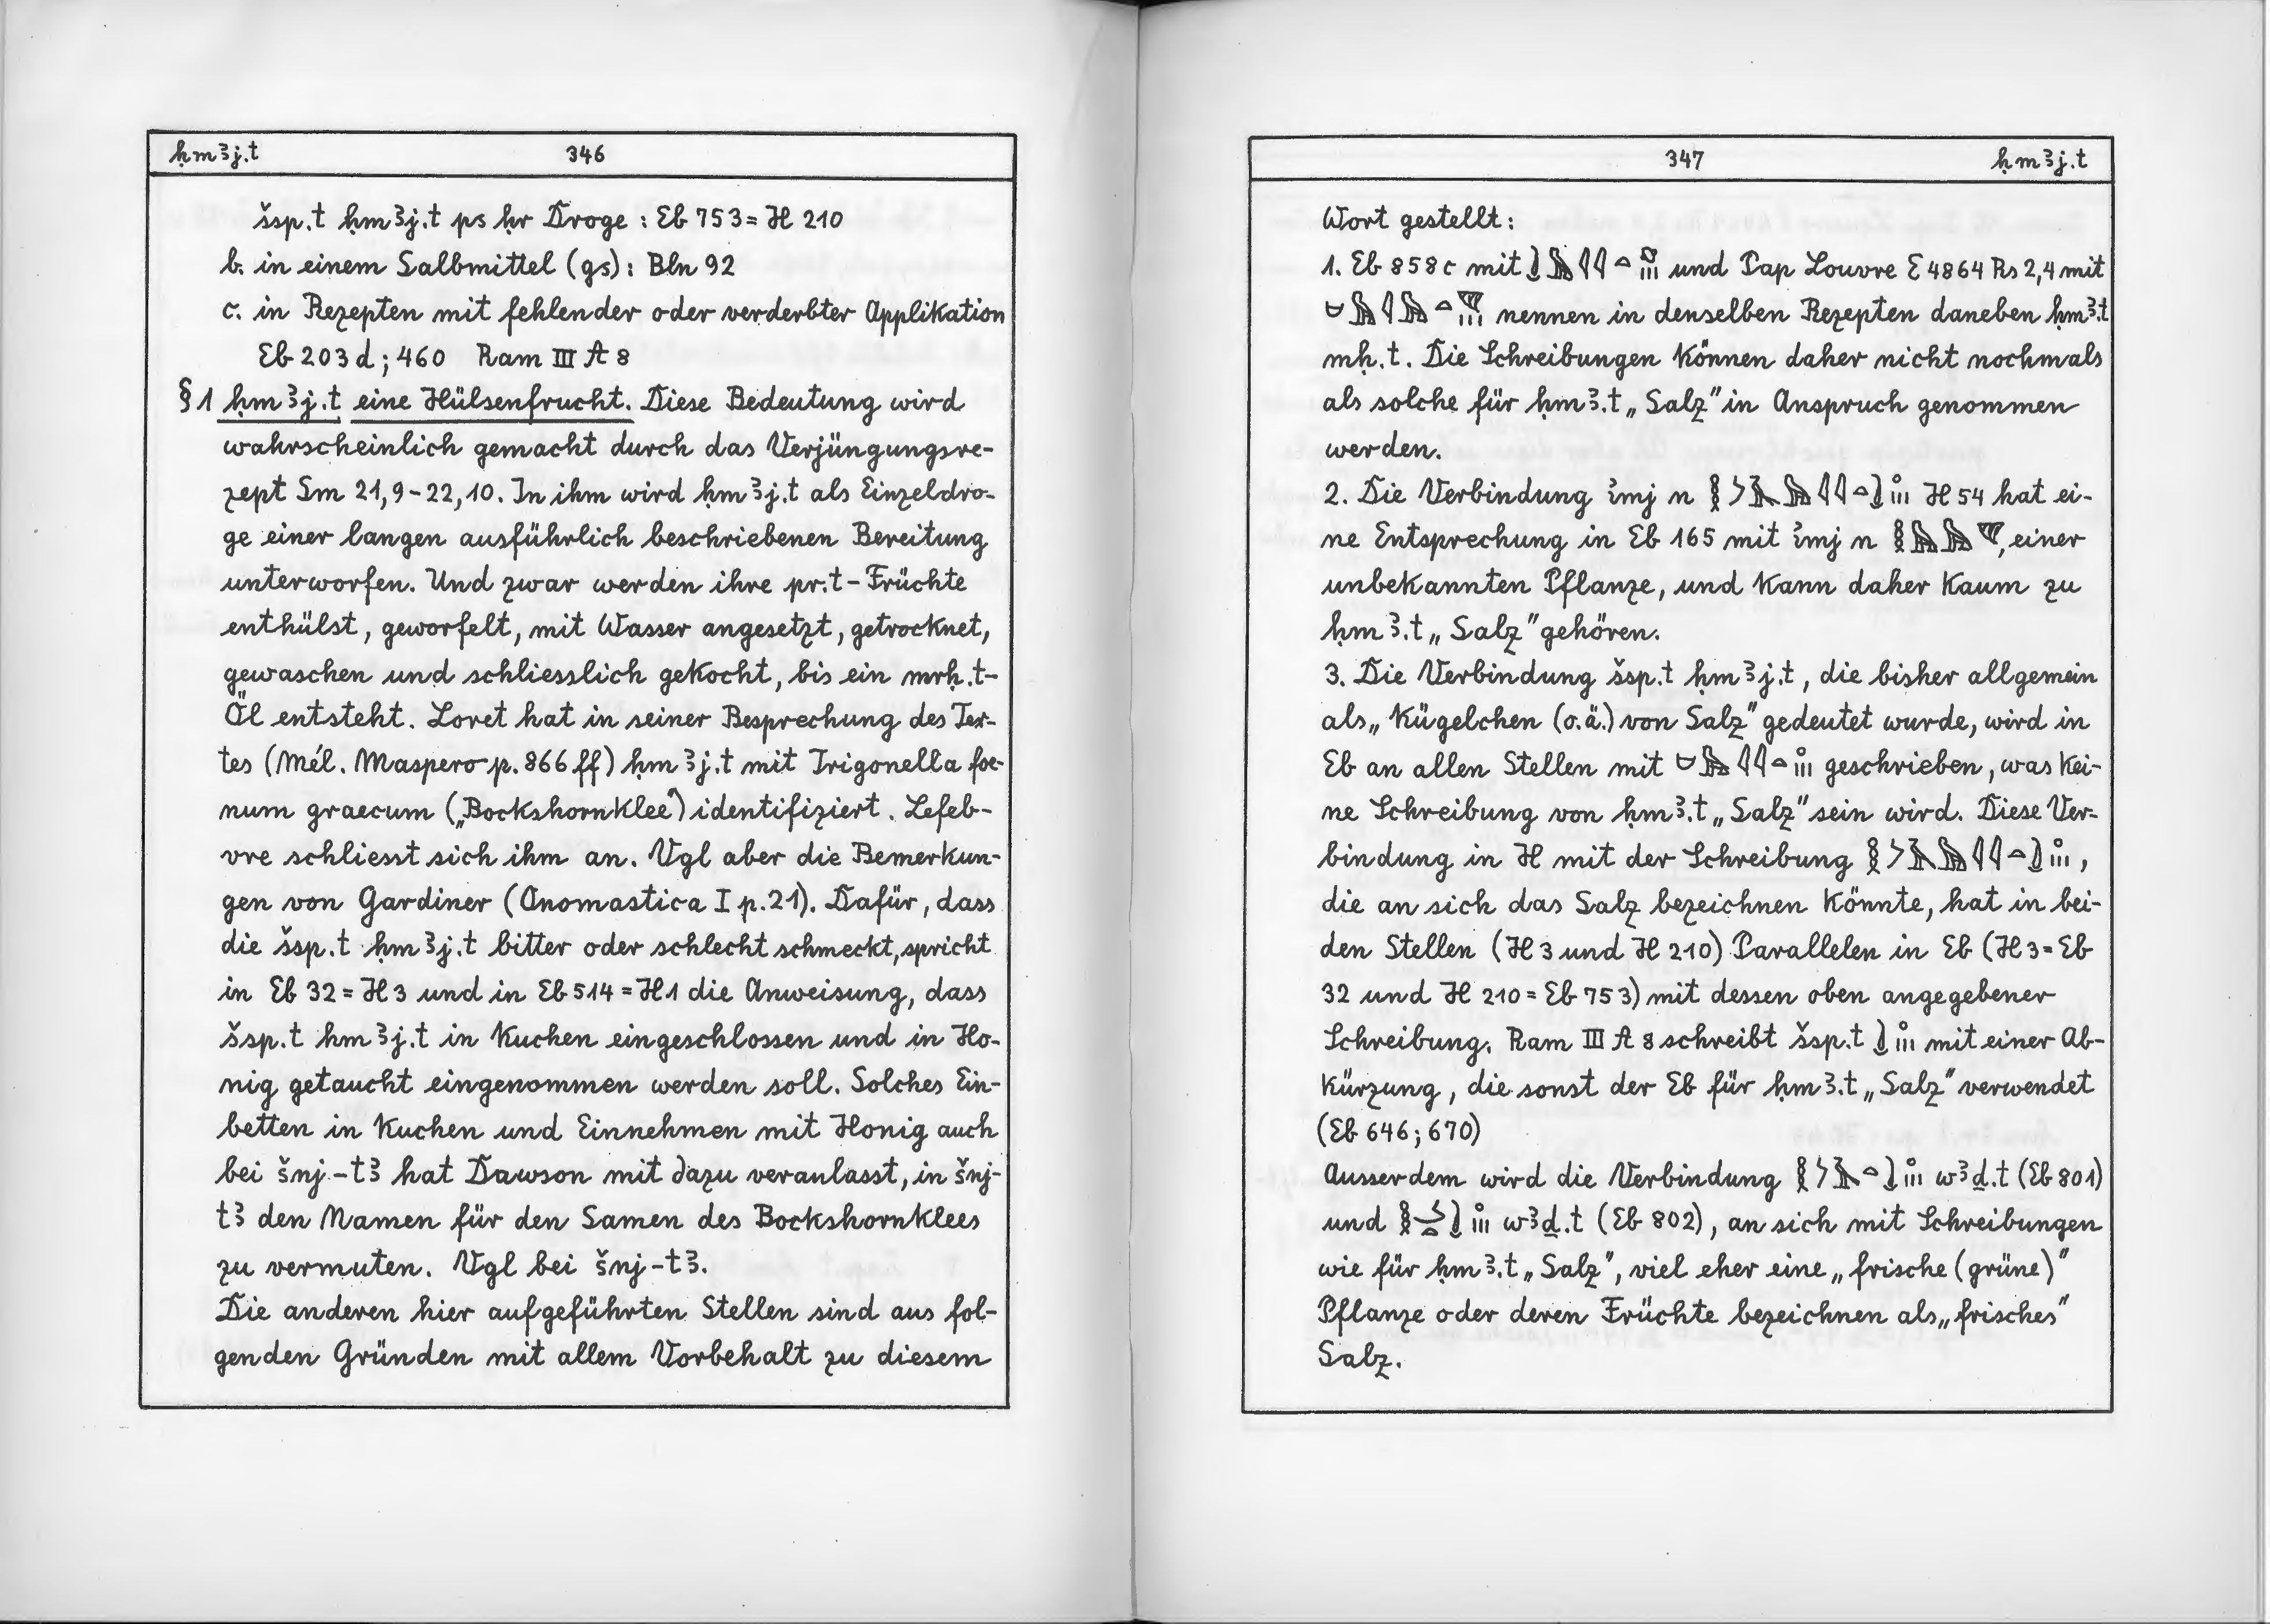 ḥmꜣj.t 346
šsp.t ḥmꜣj.t ps ḥr Droge : Eb 753 = H 210
b. in einem Salbmittel (gs) : Bln 92
c. in Rezepten mit fehlender oder verderbter Applikation
Eb 203 d ; 460 Ram III A 8
§ 1 ḥmꜣj.t eine Hülsenfrucht. Diese Bedeutung wird
wahrscheinlich gemacht durch das Verjüngungsre-
zept Sm 21,9 - 22,10. In ihm wird ḥmꜣj.t als Einzeldro-
ge einer langen ausführlich beschriebenen Bereitung
unterworfen. Und zwar werden ihre pr.t - Früchte
enthülst, geworfelt, mit Wasser angesetzt, getrocknet,
gewaschen und schliesslich gekocht, bis ein mrḥ.t-
Öl entsteht. Loret hat in seiner Besprechung des Tex-
tes (Mél. Maspero p. 866 ff) ḥmꜣj.t mit Trigonella foe-
num graecum („Bockshornklee") identifiziert. Lefeb-
vre schliesst sich ihm an. Vgl aber die Bemerkun-
gen von Gardiner (Onomastica I p. 21). Dafür, dass
die šsp.t ḥmꜣj.t bitter oder schlecht schmeckt, spricht
in Eb 32 = H 3 und in Eb 514 = H 1 die Anweisung, dass
šsp.t hmꜣj.t in Kuchen eingeschlossen und in Ho-
nig getaucht eingenommen werden soll. Solches Ein-
betten in Kuchen und Einnehmen mit Honig auch
bei šnj-tꜣ hat Dawson mit dazu veranlasst, in šnj-
tꜣ den Namen für den Samen des Bockshornklees
zu vermuten. Vgl bei šnj-tꜣ.
Die anderen hier aufgeführten Stellen sind aus fol-
genden Gründen mit allem Vorbehalt zu diesem
347 ḥmꜣj.t
Wort gestellt :
1. Eb 858 c mit und Pap Louvre E 4864 Rs 2,4 mit
nennen in denselben Rezepten daneben ḥmꜣ.t
mḥ.t. Die Schreibungen können daher nicht nochmals
als solche für ḥmꜣ.t „Salz" in Anspruch genommen
werden.
2. Die Verbindung ꞽmj n H 54 hat ei-
ne Entsprechung in Eb 165 mit ꞽmj n , einer
unbekannten Pflanze, und kann daher kaum zu
ḥmꜣ.t „Salz" gehören.
3. Die Verbindung šsp.t ḥmꜣj.t, die bisher allgemein
als „Kügelchen (o.ä.) von Salz" gedeutet wurde, wird in
Eb an allen Stellen mit geschrieben, was kei-
ne Schreibung von ḥmꜣ.t „Salz" sein wird. Diese Ver-
bindung in H mit der Schreibung ,
die an sich das Salz bezeichnen könnte, hat in bei-
den Stellen (H 3 und H 210) Parallelen in Eb (H 3 = Eb
32 und H 210 = Eb 753) mit dessen oben angegebener
Schreibung. Ram III A 8 schreibt šsp.t mit einer Ab-
kürzung, die sonst der Eb für ḥmꜣ.t „Salz" verwendet
(Eb 646 ; 670)
Ausserdem wird die Verbindung wꜣḏ.t (Eb 801)
und wꜣḏ.t (Eb 802), an sich mit Schreibungen
wie für ḥmꜣ.t „Salz", viel eher eine „frische (grüne)"
Pflanze oder deren Früchte bezeichnen als „frisches"
Salz.